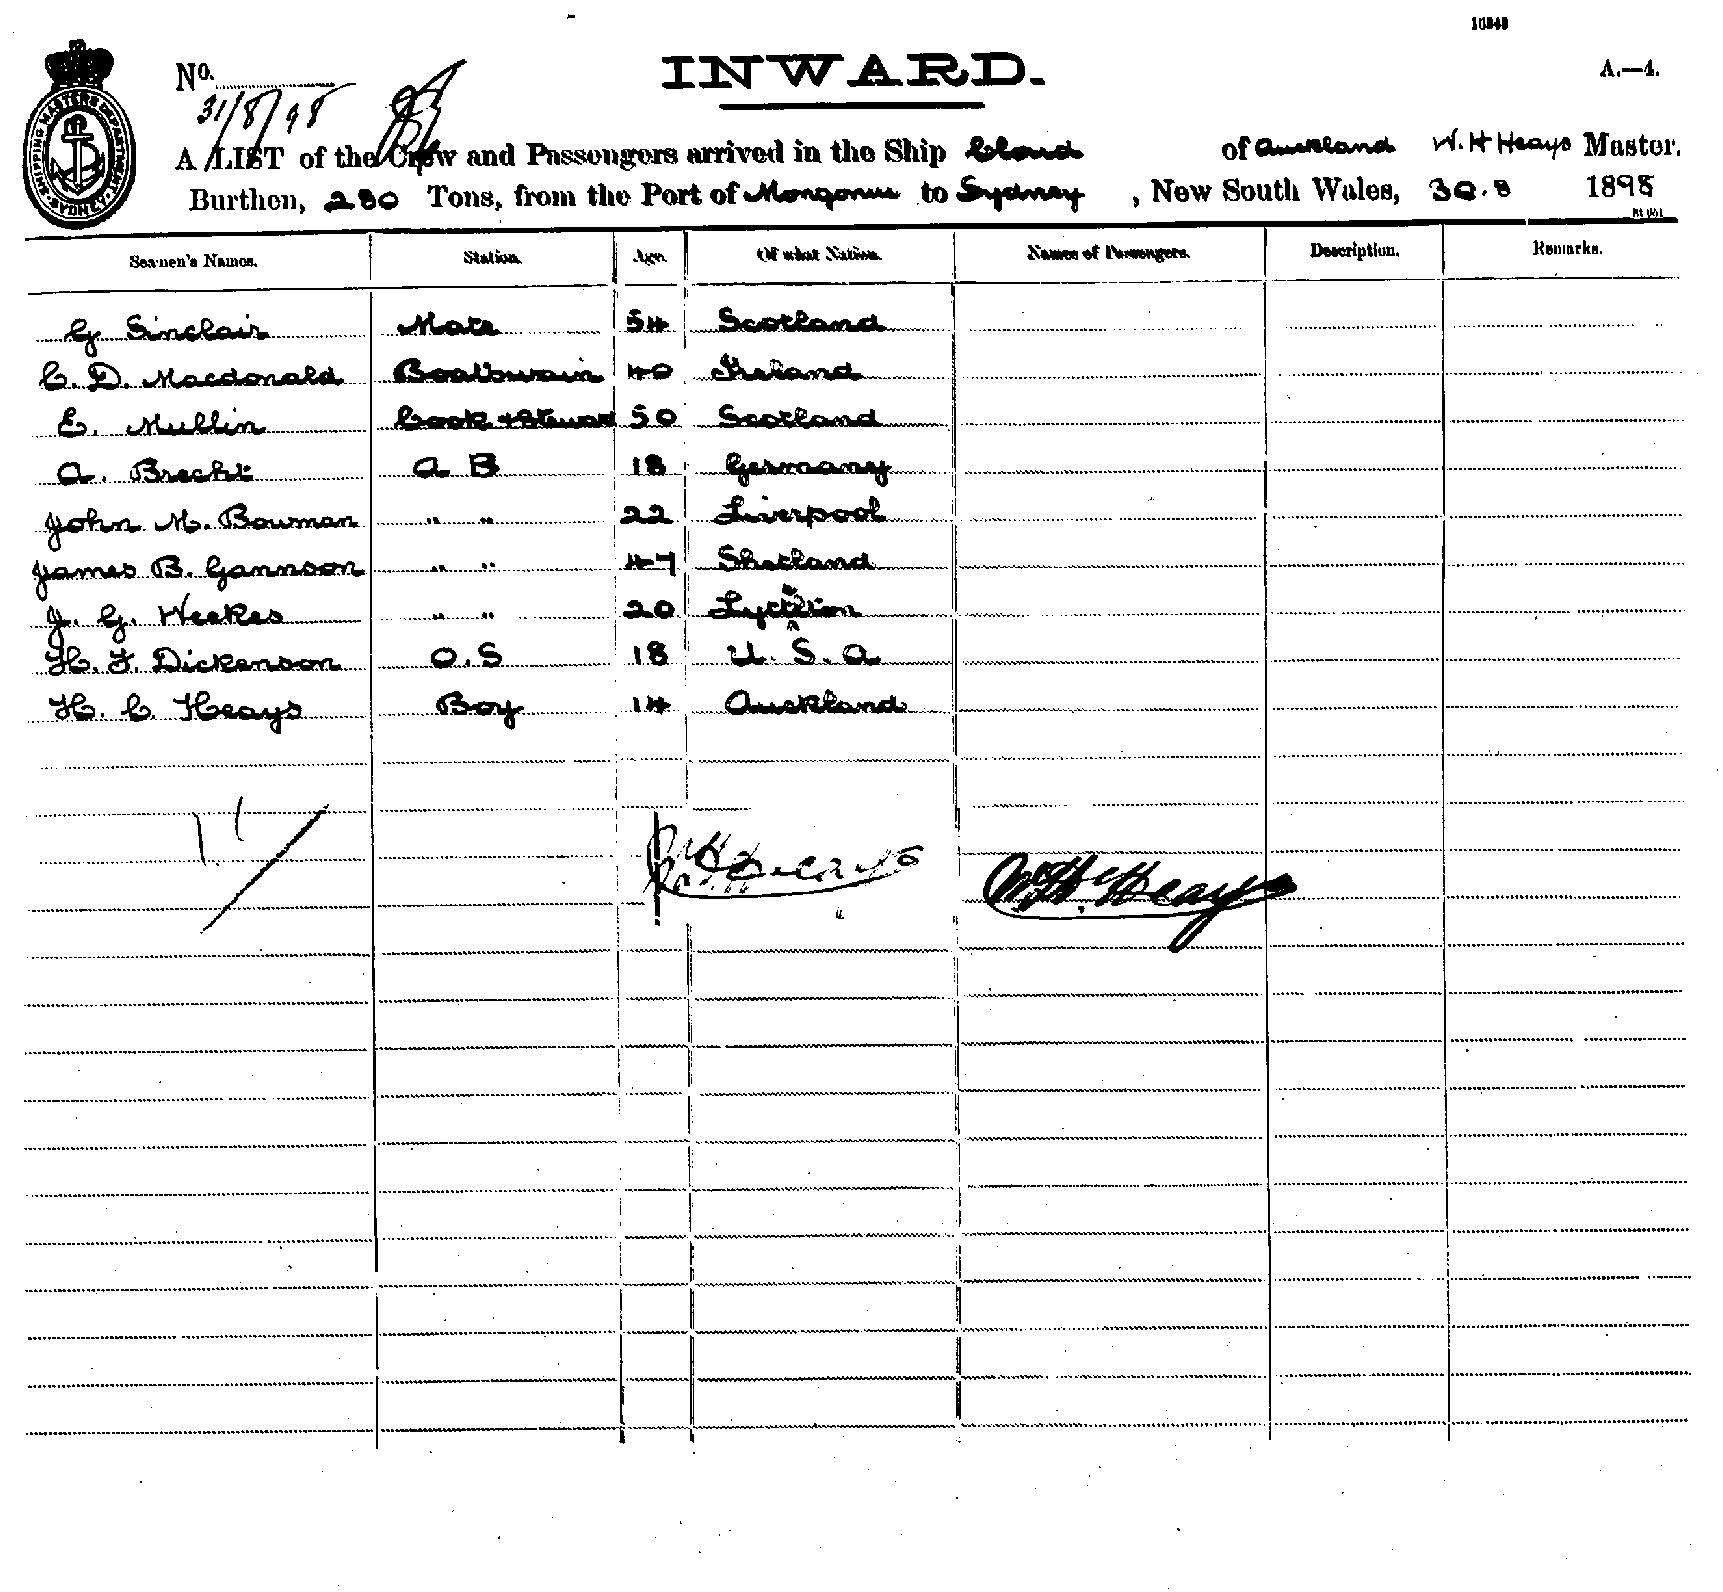 10848
INWARD.
A.—4.
No.
31/8/98
SHIPPING MASTERS DEPARTMENT SYDNEY
A LIST of the Crew and Passengers arrived in the Ship Cloud of Auckland W. H Heays Master.
Burthen, 280 Tons, from the Port of Mongonui to Sydney , New South Wales, 30.8 1898
Seamen's Names. Station. Age. Of what Nation. Names of Passengers. Description. Remarks.
G Sinclair Mate 54 Scotland
C. D. Macdonald Boatswain 40 Ireland
E. Mullin Cook & Steward 50 Scotland
A. Brecht A B 18 Germany
John M. Bowman " " 22 Liverpool
James B. Gannson " " 47 Shetland
J. G. Weekes " " 20 Lyttelton
H. F. Dickenson O.S 18 U. S. A
H. C Heays Boy 14 Auckland
W. H. Heays
W. H. Heays